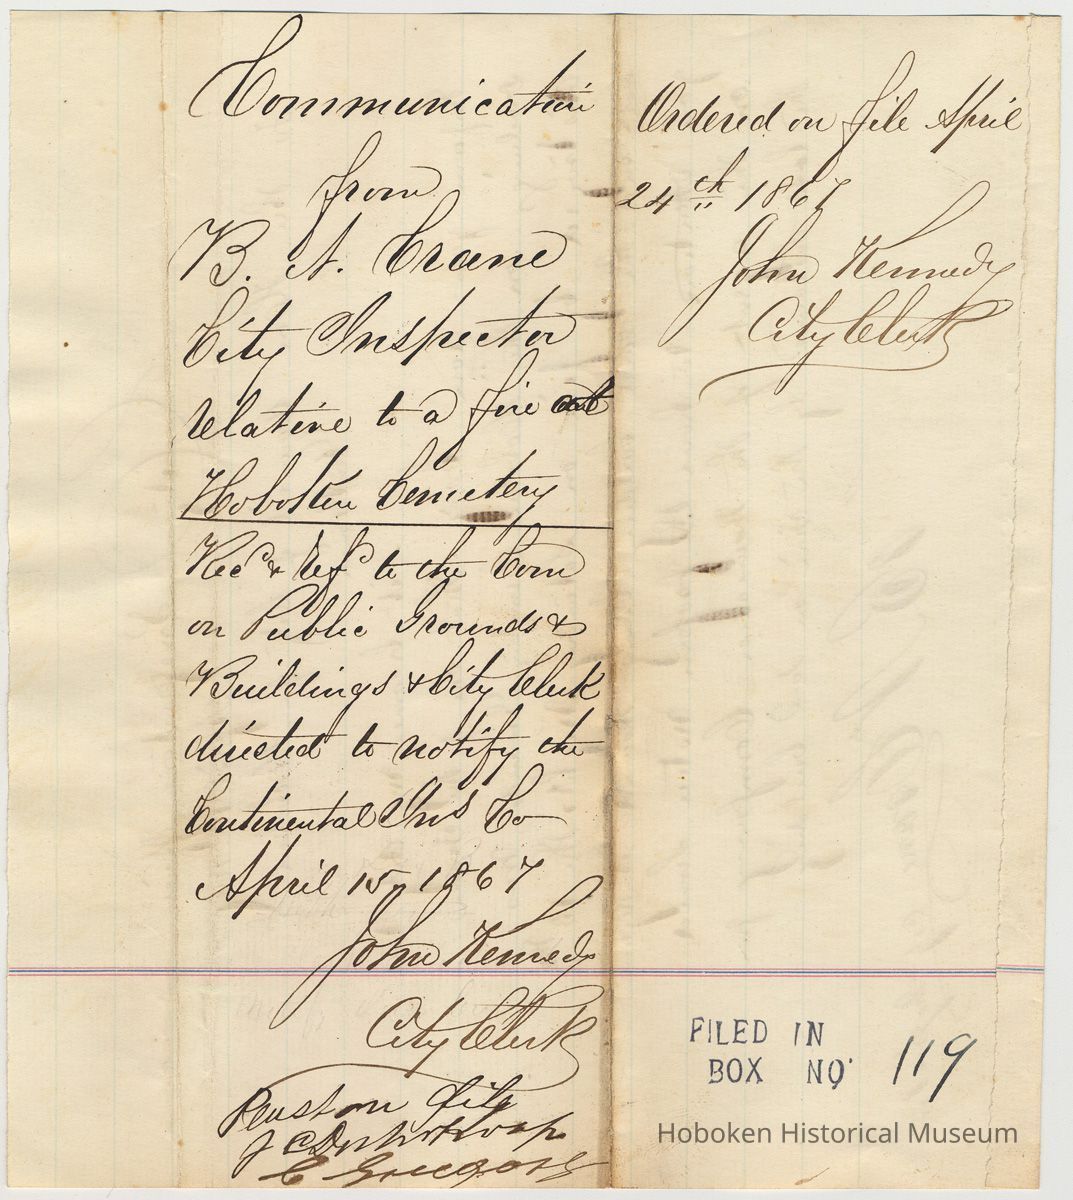 Communication
from
B. N. Crane
City Inspector
relative to a fire at
Hoboken Cemetery
Rec^d & Ref^d to the Com
on Public Grounds &
Buildings & City Clerk
directed to notify the
Continental Ins Co
April 15, 1867
John Kennedy
City Clerk
on file
Ordered on file April
24th 1867
John Kennedy
City Clerk
FILED IN
BOX NO. 119
Hoboken Historical Museum